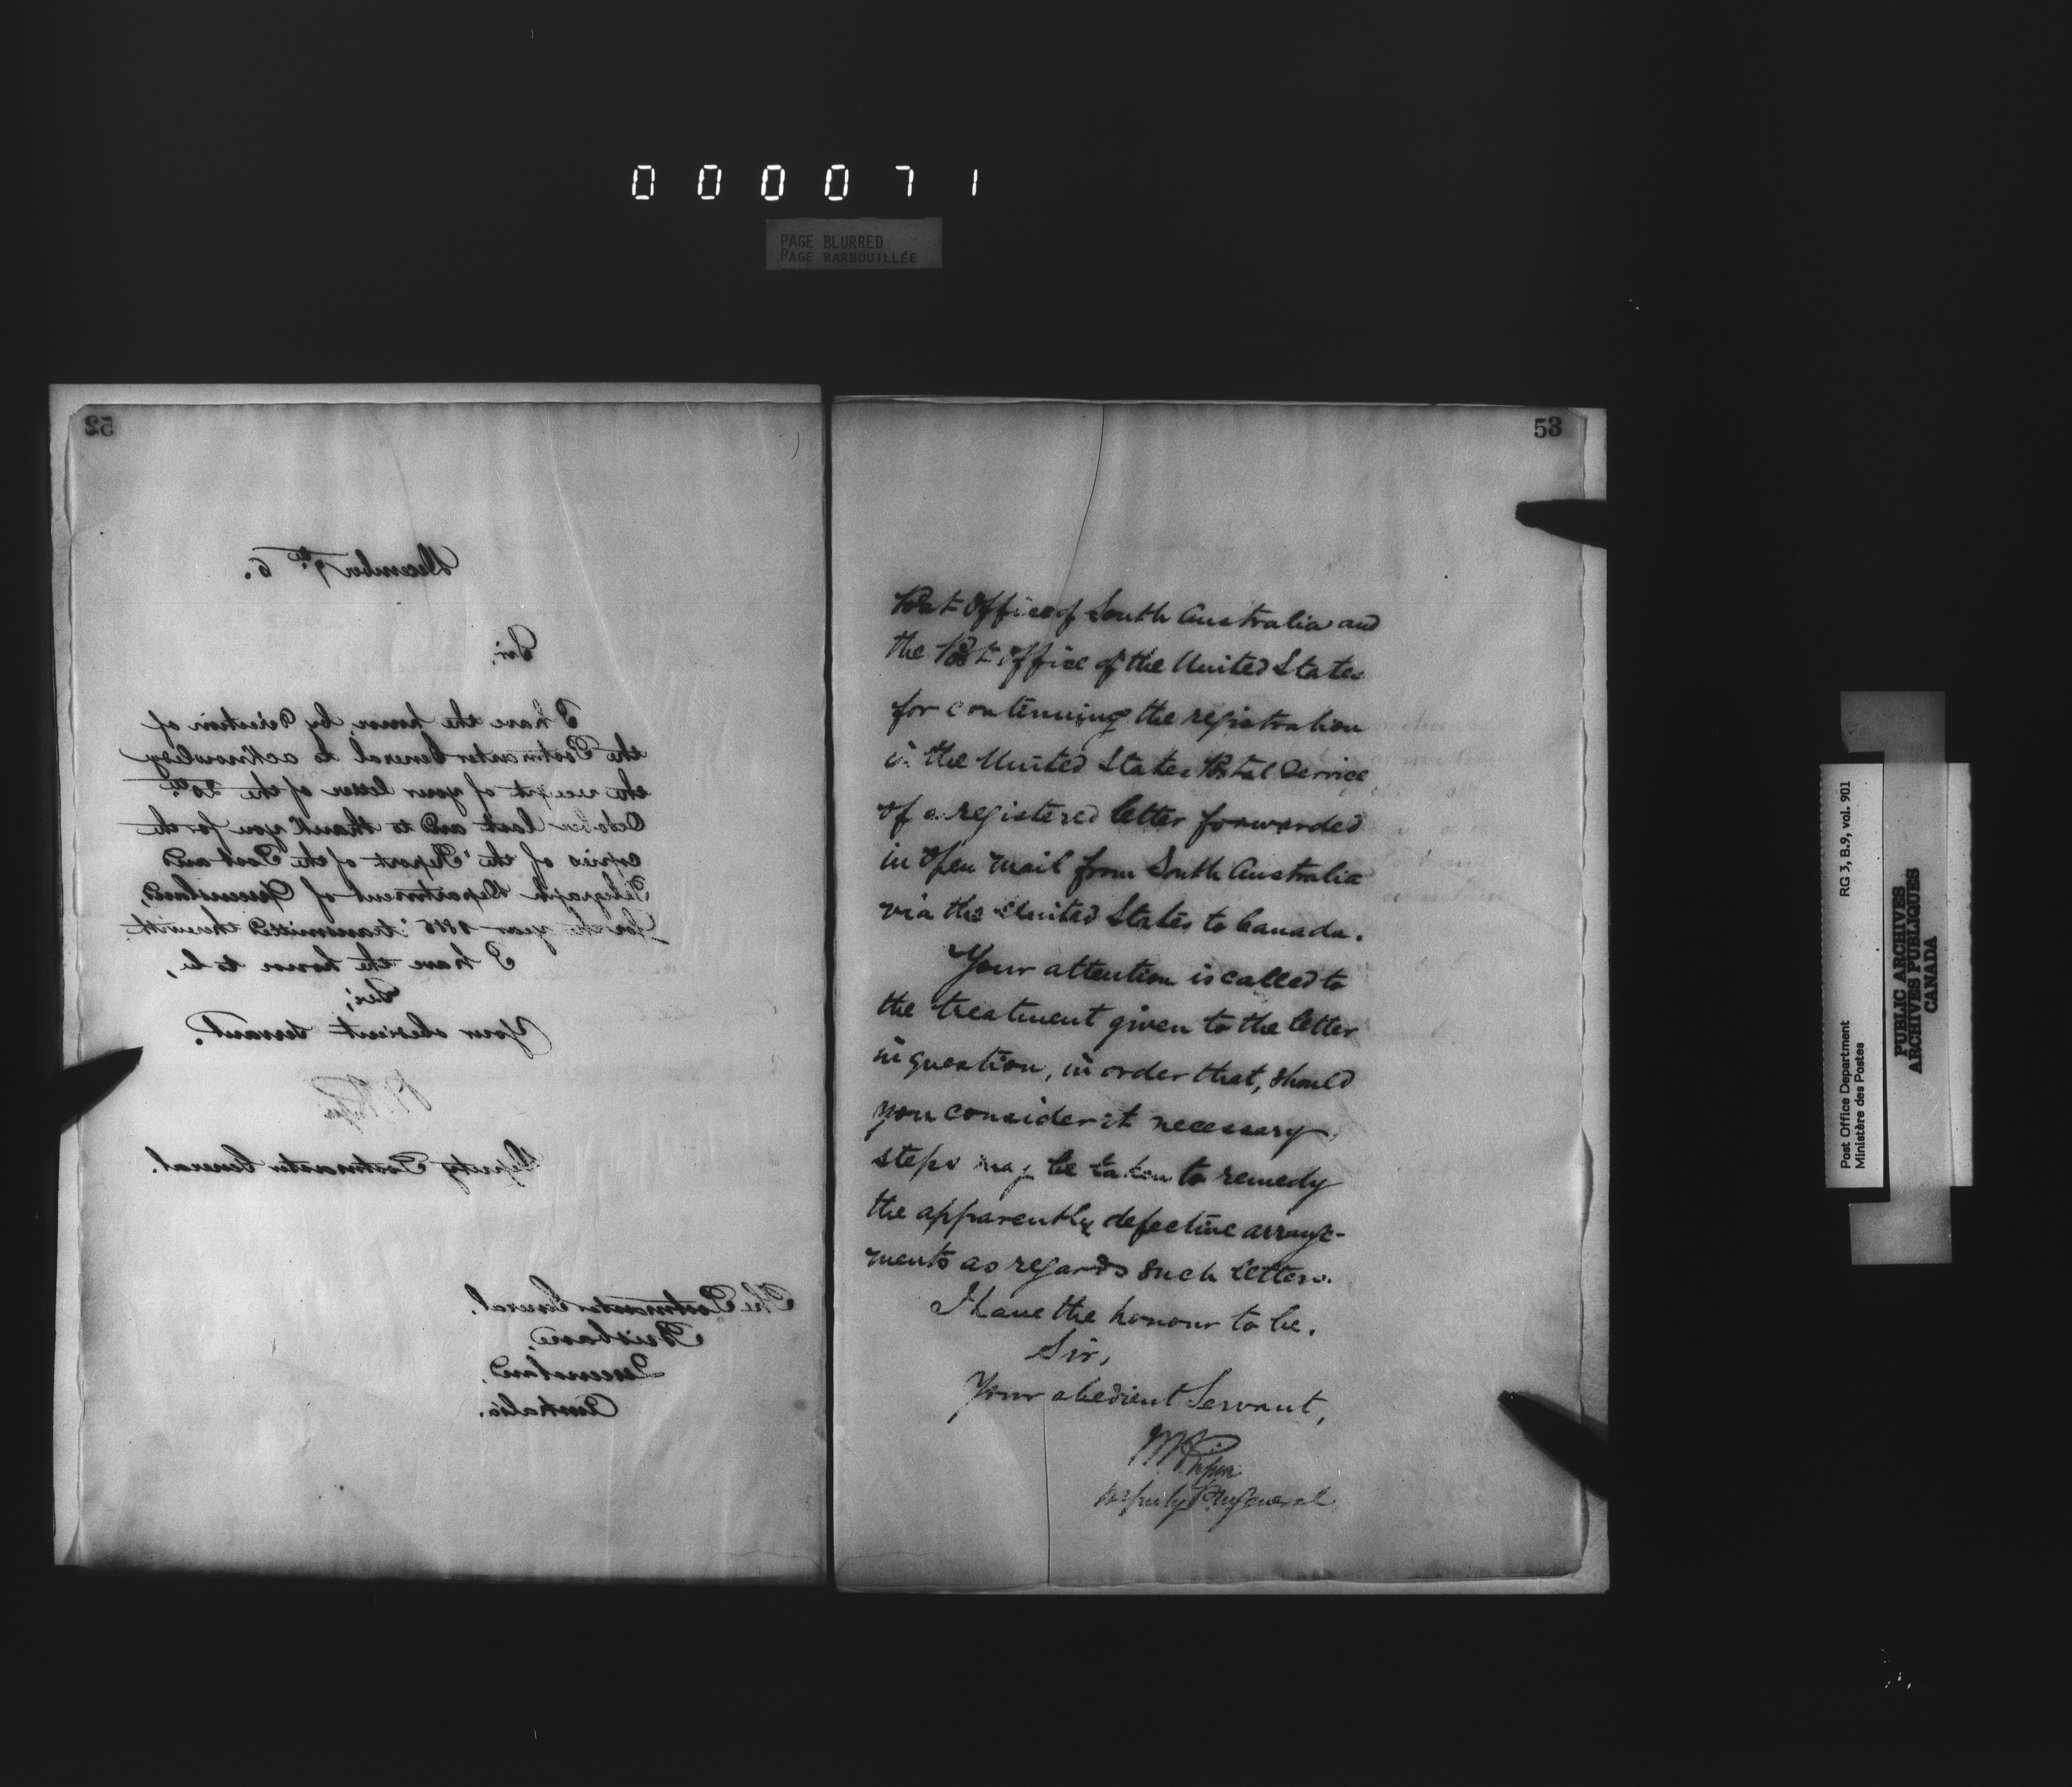 000071
PAGE BLURRED
PAGE BARBOUILLÉE
52
December 9th 6.
Sir,
I have the honor, by direction of
the Postmaster General to acknowledge
the receipt of your letter of the 20th
October last and to thank you for the
copies of the Report of the Post and
Telegraph Department of Queensland,
for the year 1885 transmitted therewith.
I have the honor to be,
Sir,
Your obedient servant.
Deputy Postmaster General.
The Postmaster General,
Brisbane,
Queensland,
Australia.
53
Post Office of South Australia and
the Post Office of the United States
for continuing the registration
in the United States Postal Service
of a registered letter forwarded
in open mail from South Australia
via the United States to Canada.
Your attention is called to
the treatment given to the letter
in question, in order that, should
you consider it necessary
steps may be taken to remedy
the apparently defective arrange-
ments as regards such letters.
I have the honour to be.
Sir,
Your obedient Servant,
Deputy P.M. General
Post Office Department
Ministère des Postes
RG 3, B.9, vol. 901
PUBLIC ARCHIVES
ARCHIVES PUBLIQUES
CANADA